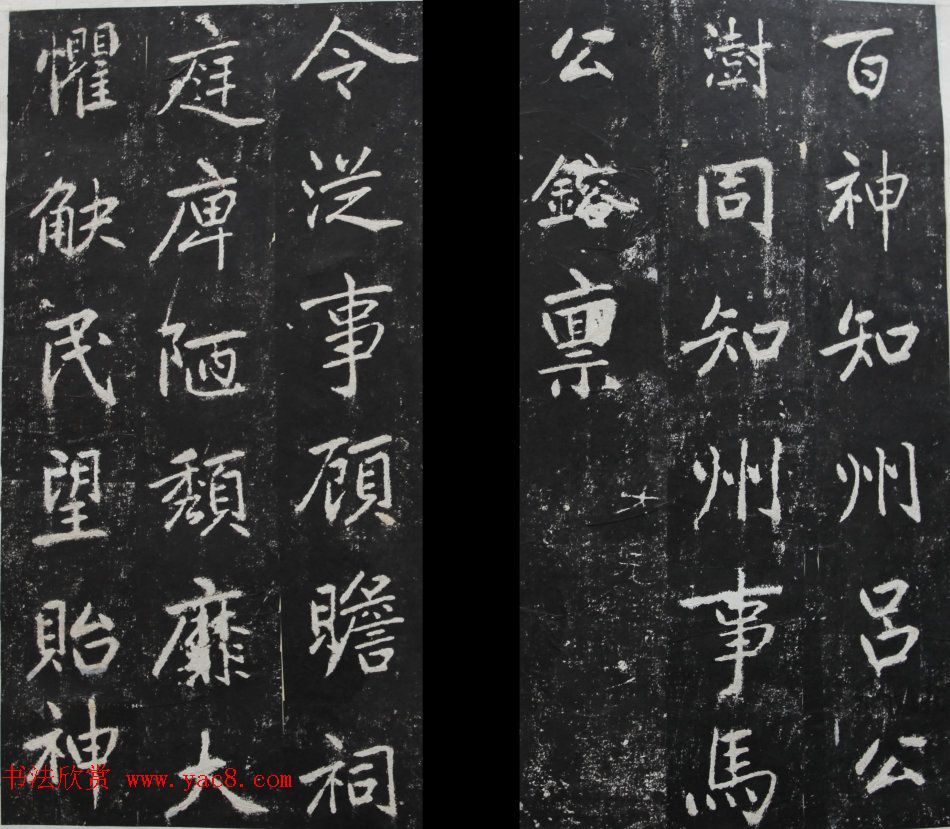 百神知州吕公
澍同知州事馬
公鎔禀
令從事頋瞻祠
庭庳陋頽靡大
懼觖民望貽神
书法欣赏 www.yac8.com